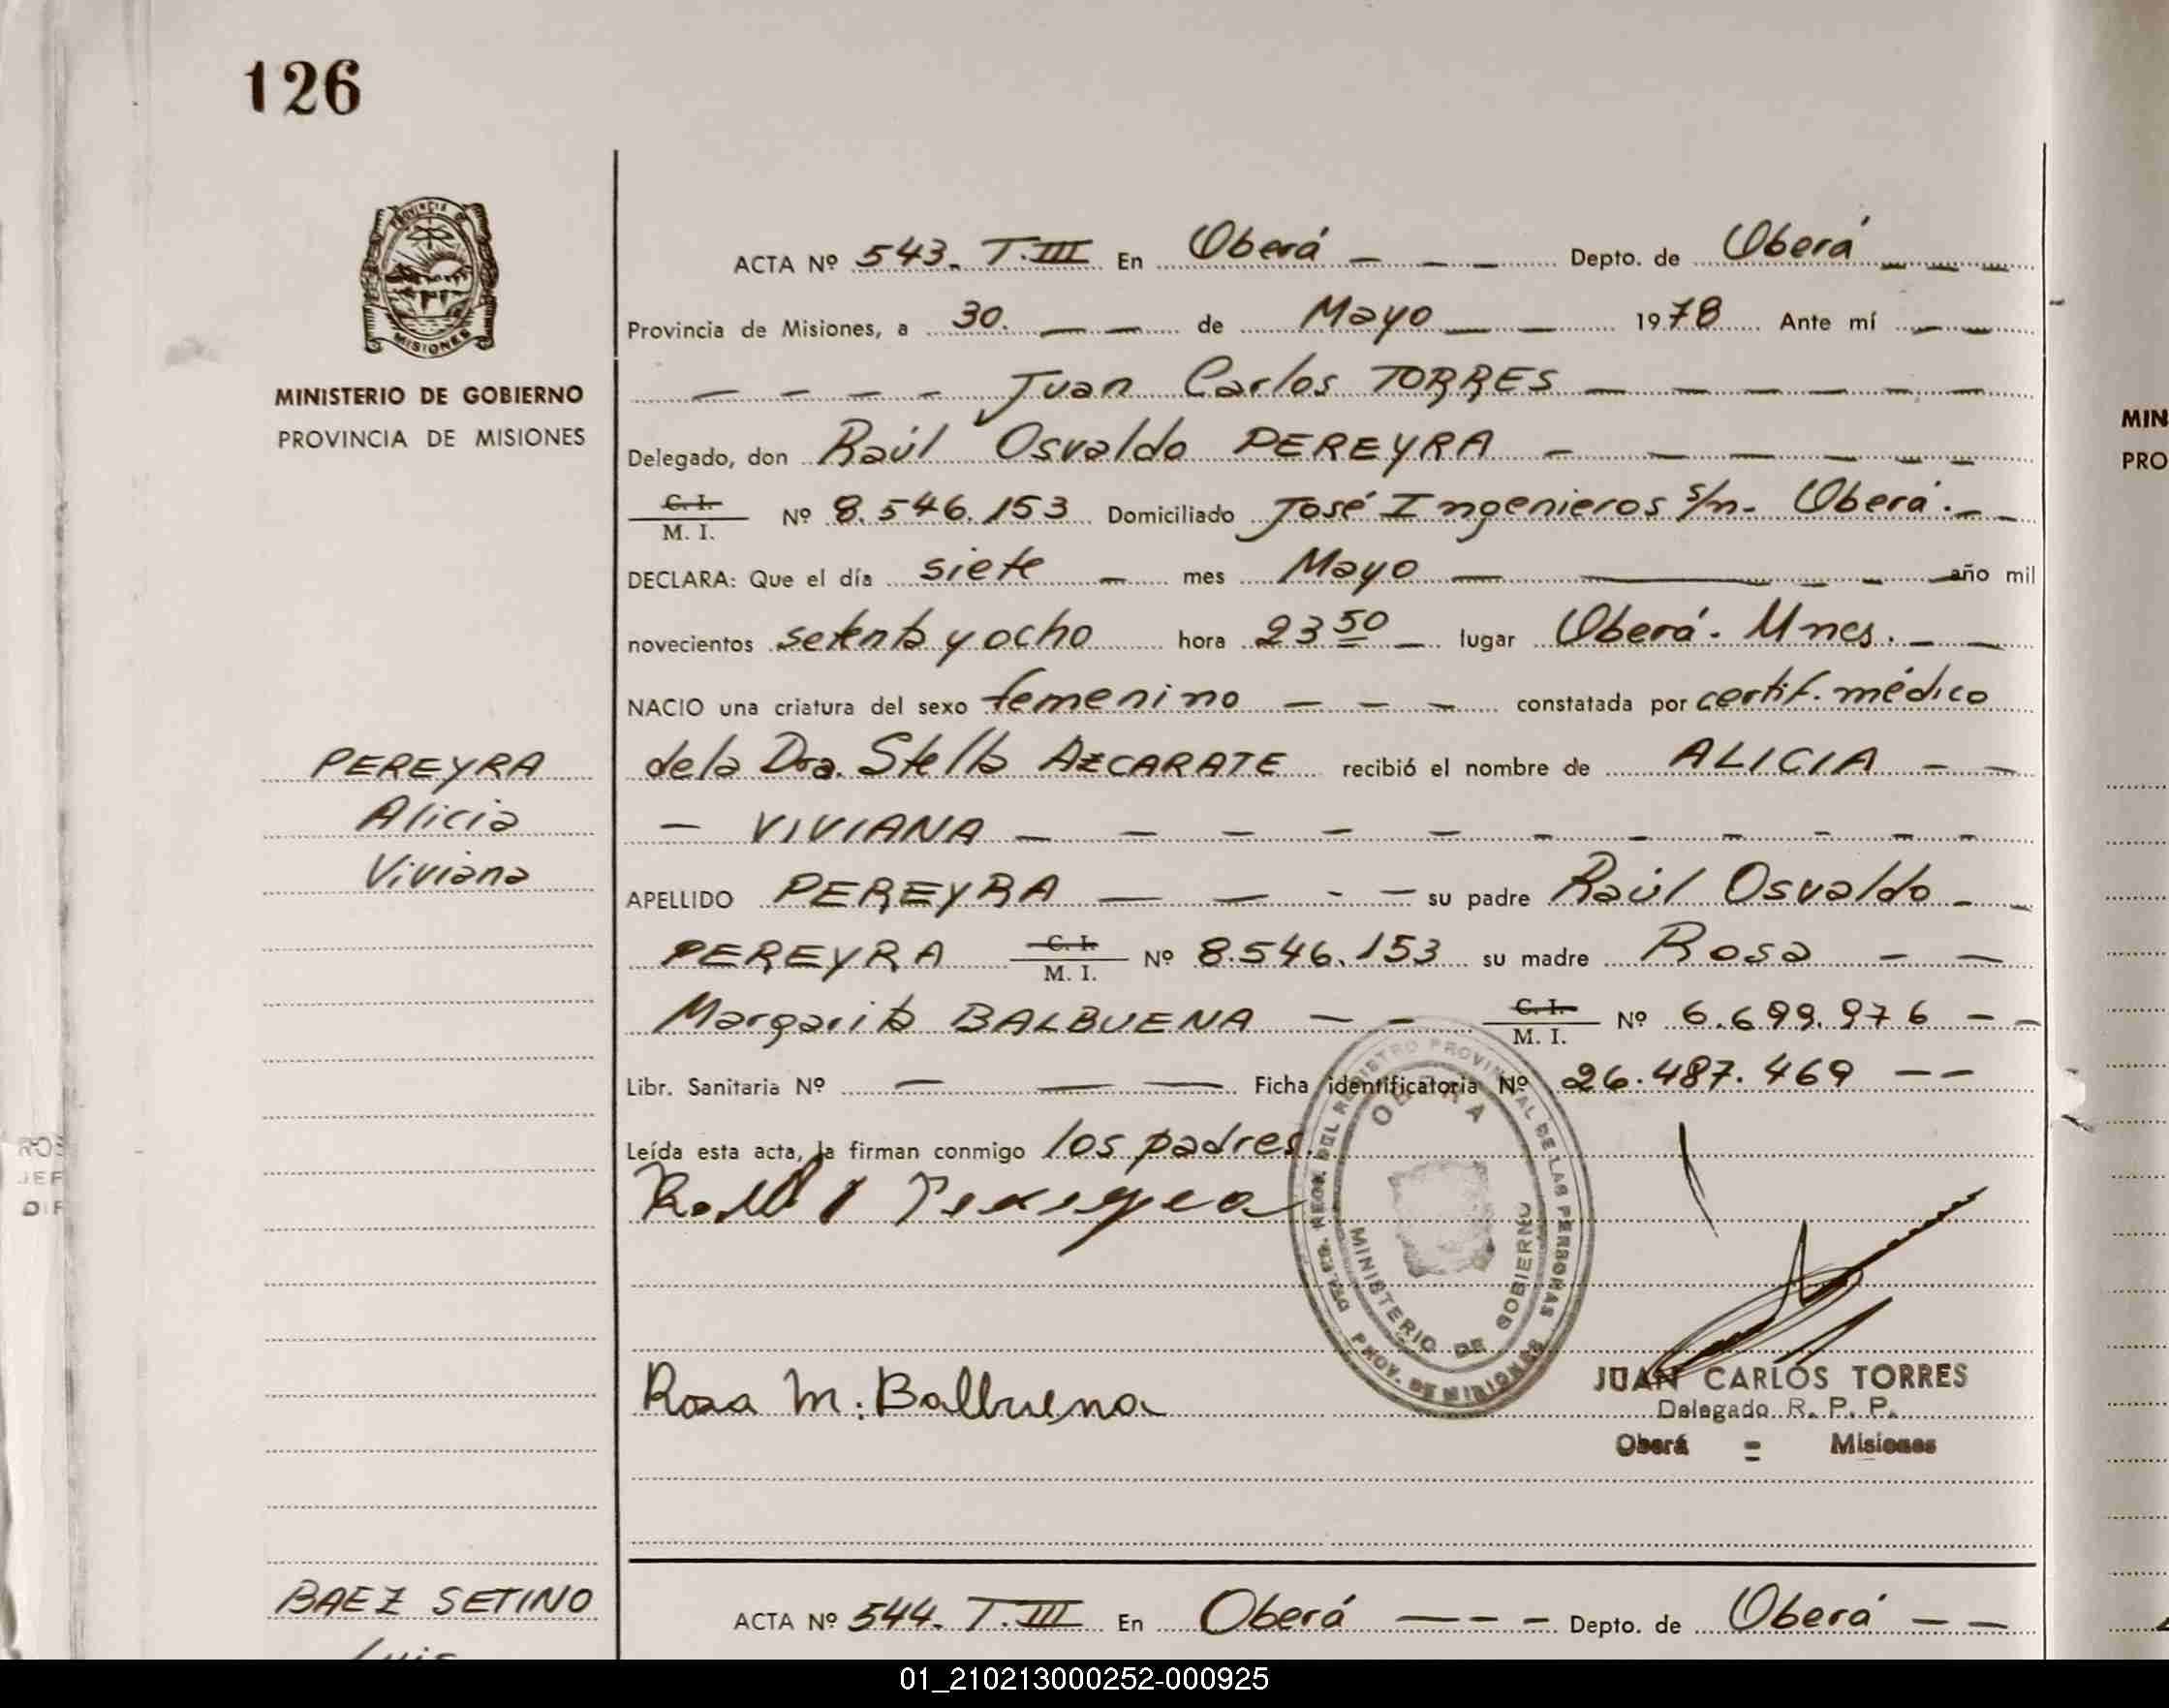 126
PROVINCIA DE
MISIONES
MINISTERIO DE GOBIERNO
PROVINCIA DE MISIONES
ACTA Nº 543. T.III En Oberá Depto. de Oberá
Provincia de Misiones, a 30. de Mayo 1978 Ante mí
Juan Carlos TORRES
Delegado, don Raúl Osvaldo PEREYRA
C. I.
M. I. Nº 8.546.153 Domiciliado José Ingenieros s/n. Oberá.
DECLARA: Que el día siete mes Mayo año mil
novecientos setenta y ocho hora 23 50 lugar Oberá. Mnes.
NACIO una criatura del sexo femenino constatada por certif. médico
de la Dra. Stella AZCARATE recibió el nombre de ALICIA
VIVIANA
PEREYRA
Alicia
Viviana
APELLIDO PEREYRA su padre Raúl Osvaldo
PEREYRA C. I. M. I. Nº 8.546.153 su madre Rosa
Margarita BALBUENA C. I. M. I. Nº 6.699.976
Libr. Sanitaria Nº Ficha identificatoria Nº 26.487.469
Leída esta acta, la firman conmigo los padres.
Rosa M. Balbuena
OBERA
MINISTERIO DE GOBIERNO
PROV. DE MISIONES
JUAN CARLOS TORRES
Delegado R. P. P.
Oberá = Misiones
BAEZ SETINO
Luis
ACTA Nº 544. T.III En Oberá Depto. de Oberá
MIN
PRO
01_210213000252-000925